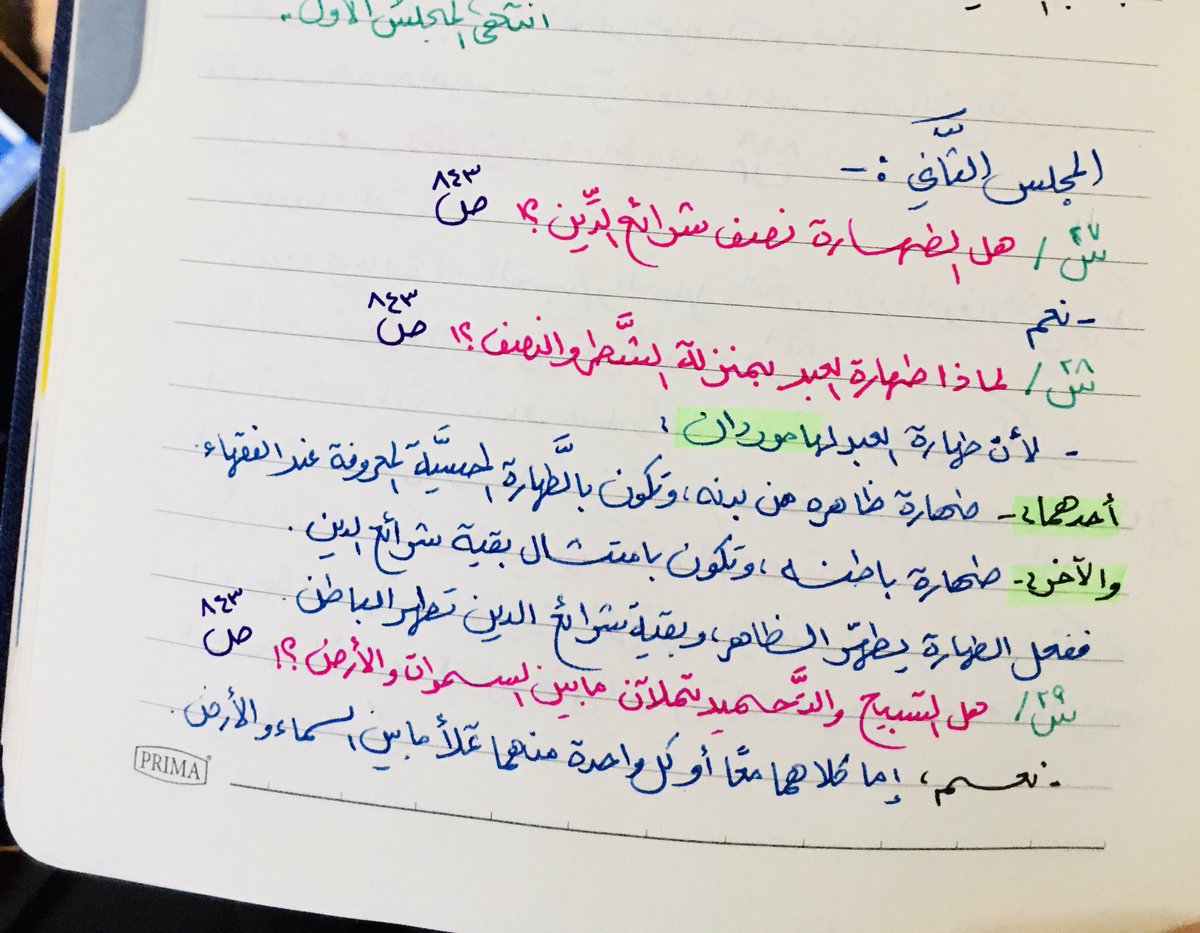 انتهى المجلس الأول.
المجلس الثَّاني :-
س٢٧/ هل الطهارة نصف شرائع الدِّين؟! ص٨٤٣
- نعم
س٢٨/ لماذا طهارة العبد بمنزلة الشَّطر والنصف؟! ص٨٤٣
- لأن طهارة العبد لها موردان :
أحدهما:- طهارة ظاهره من بدنه، وتكون بالطَّهارة الحسيَّة المعروفة عند الفقهاء.
والآخر:- طهارة باطنه، وتكون بامتثال بقية شرائع الدين.
ففعل الطهارة يطهّر الظاهر، وبقية شرائع الدين تطهر الباطن.
س٢٩/ هل التسبيح والتَّحميد تملآن مابين السموات والأرض؟! ص٨٤٣
- نعم، إما كلاهما معًا أو كل واحدة منهما تملأ مابين السماء والأرض.
PRIMA